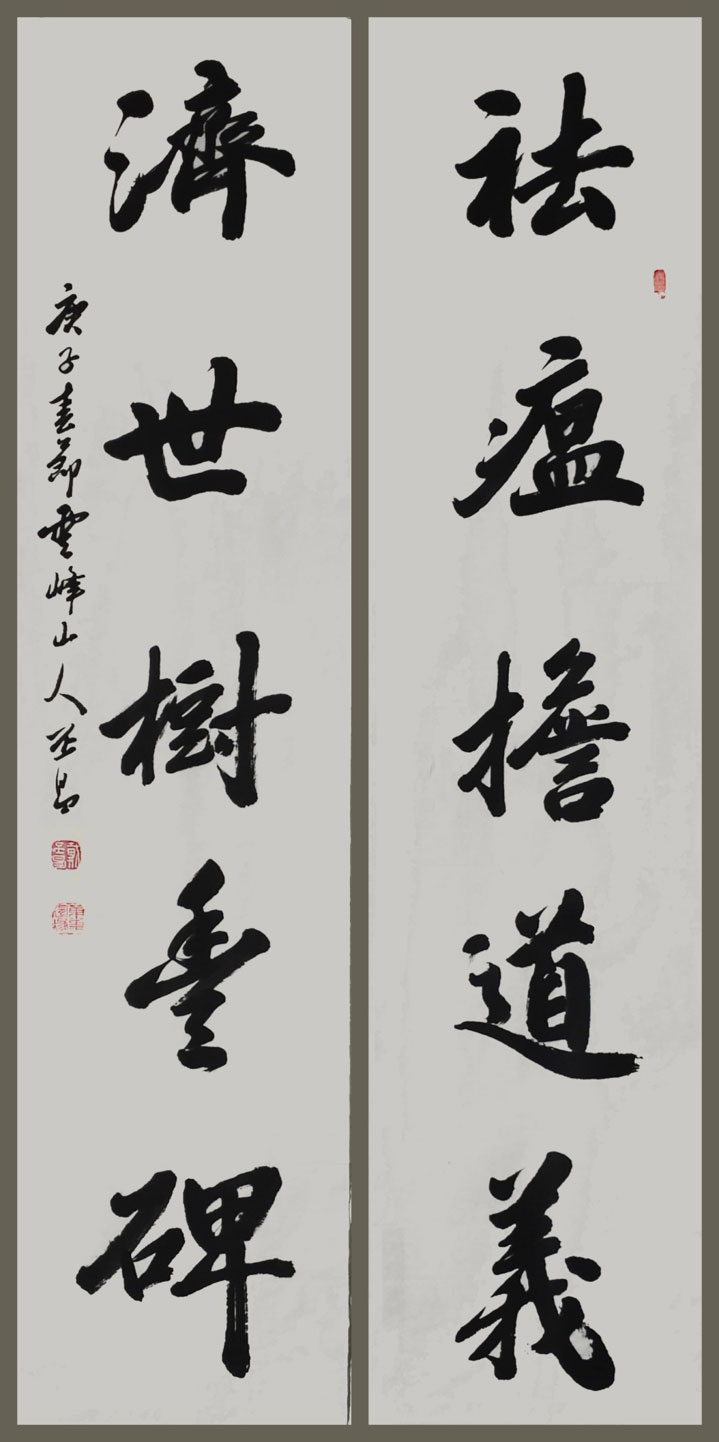 祛瘟擔道義
濟世樹豐碑
庚子春節雲峰山人